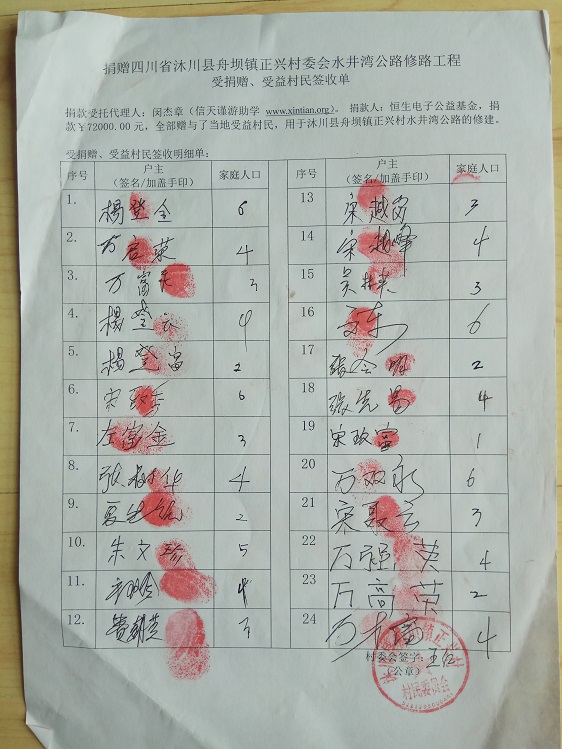 捐赠四川省沐川县舟坝镇正兴村委会水井湾公路修路工程
受捐赠、受益村民签收单
捐款受托代理人：闵杰章（信天谨游助学 www.xintian.org）。捐款人：恒生电子公益基金，捐
款￥72000.00 元，全部赠与了当地受益村民，用于沐川县舟坝镇正兴村水井湾公路的修建。
受捐赠、受益村民签收明细单：
序号 户主（签名/加盖手印） 家庭人口
1. 楊登全 6
2. 万启荣 4
3. 万富 3
4. 楊登 4
5. 楊登富 2
6. 宋 6
7. 左富金 3
8. 张 华 4
9. 夏 2
10. 朱文珍 5
11. 4
12. 黄 3
序号 户主（签名/加盖手印） 家庭人口
13 宋越岗 3
14 宋越峰 4
15 吴 3
16 万 6
17 张会明 2
18 张先 4
19 宋玖富 1
20 万双 6
21 宋 3
22 万强英 4
23 万高荣 2
24 万 富 4
村委会签字：王
（公章）
村民委员会